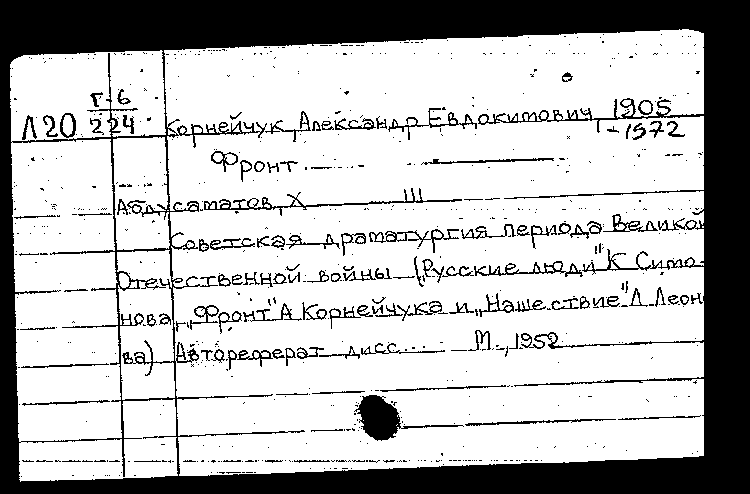 Г-6
Л20 224 Корнейчук, Александр Евдокимович, 1905
-1972
Фронт
Абдусаматов, Х III
Советская драматургия периода Великой
Отечественной войны („Русские люди" К Симо-
нова, „Фронт" А Корнейчука и „Нашествие" Л Леоно
ва) Автореферат дисс... М., 1952